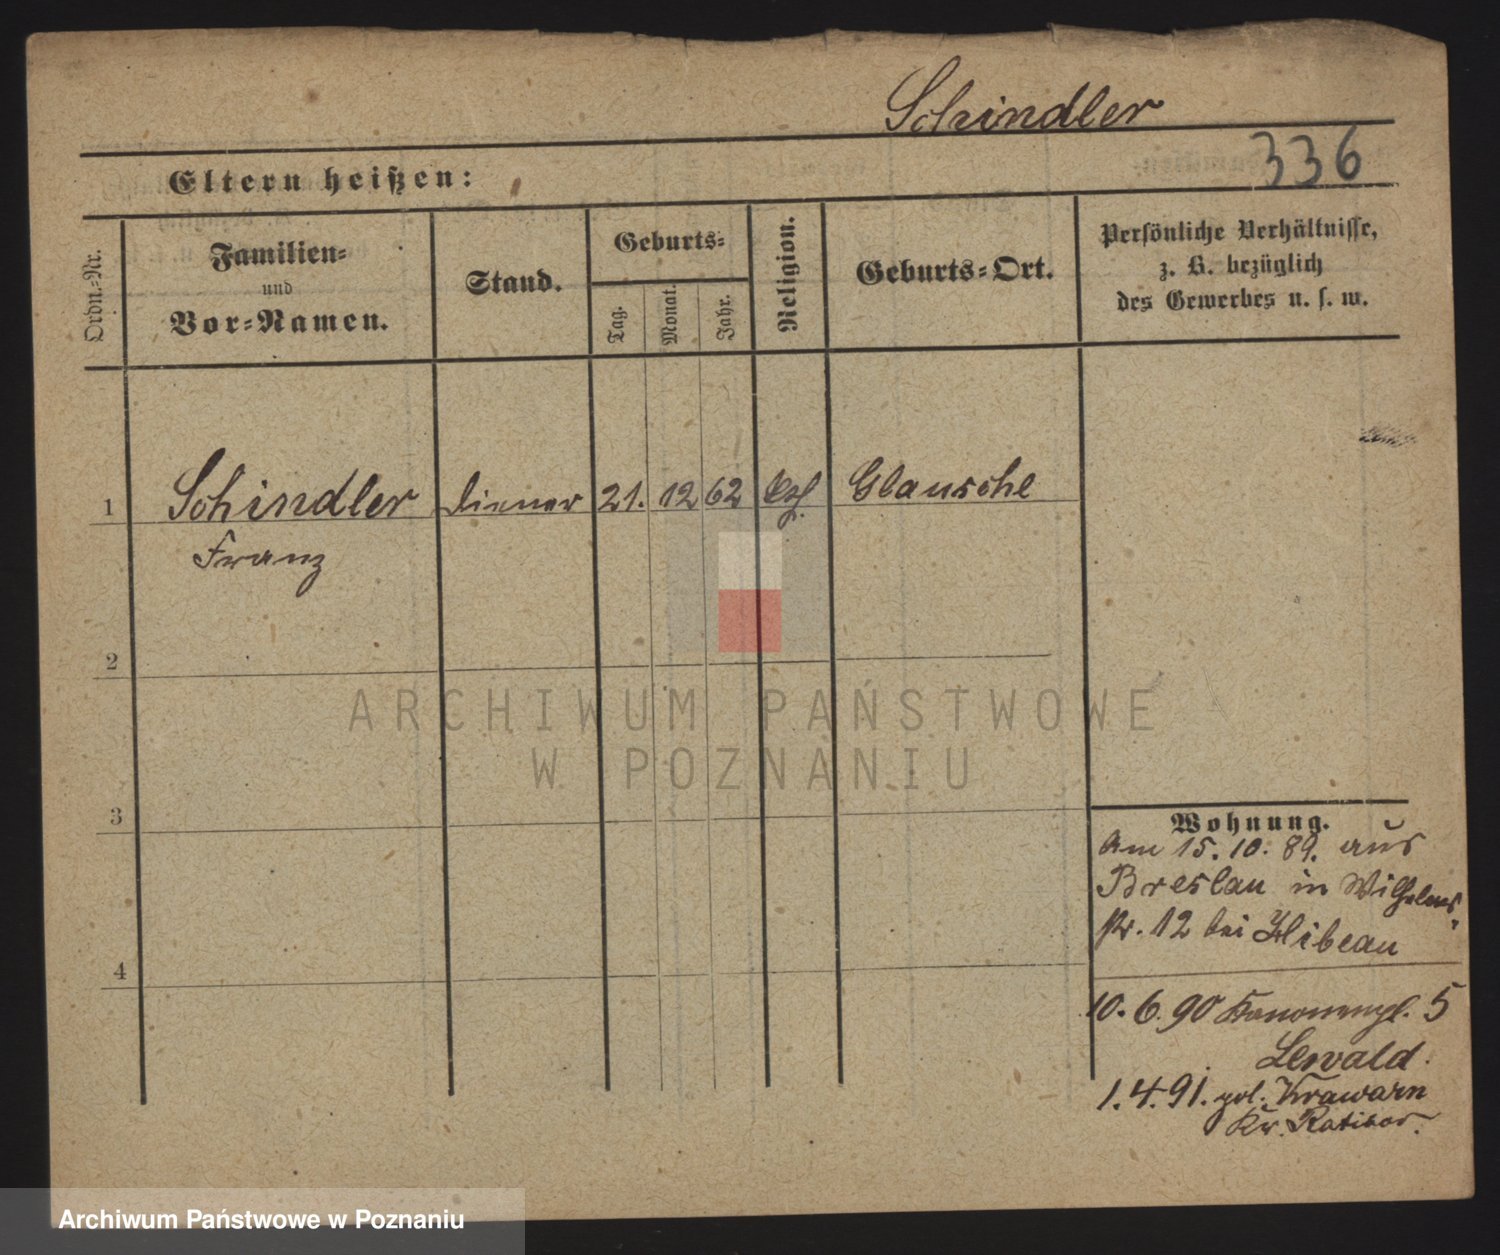 Schindler
336
Eltern heißen:
Ordn.-Nr.
Familien-
und
Vor-Namen.
Stand.
Geburts-
Tag.
Monat.
Jahr.
Religion.
Geburts-Ort.
Persönliche Verhältnisse,
z. B. bezüglich
des Gewerbes u. s. w.
1 Schindler Diener 21. 12 62 Glausche
Franz
2
3
4
Wohnung.
Am 15. 10. 89. aus
Breslau in Wilhelms-
str. 12 bei
10. 6. 90 Kanonenpl. 5
Lewald.
1. 4. 91. Krawarn
Kr. Ratibor.
ARCHIWUM PAŃSTWOWE
W POZNANIU
Archiwum Państwowe w Poznaniu